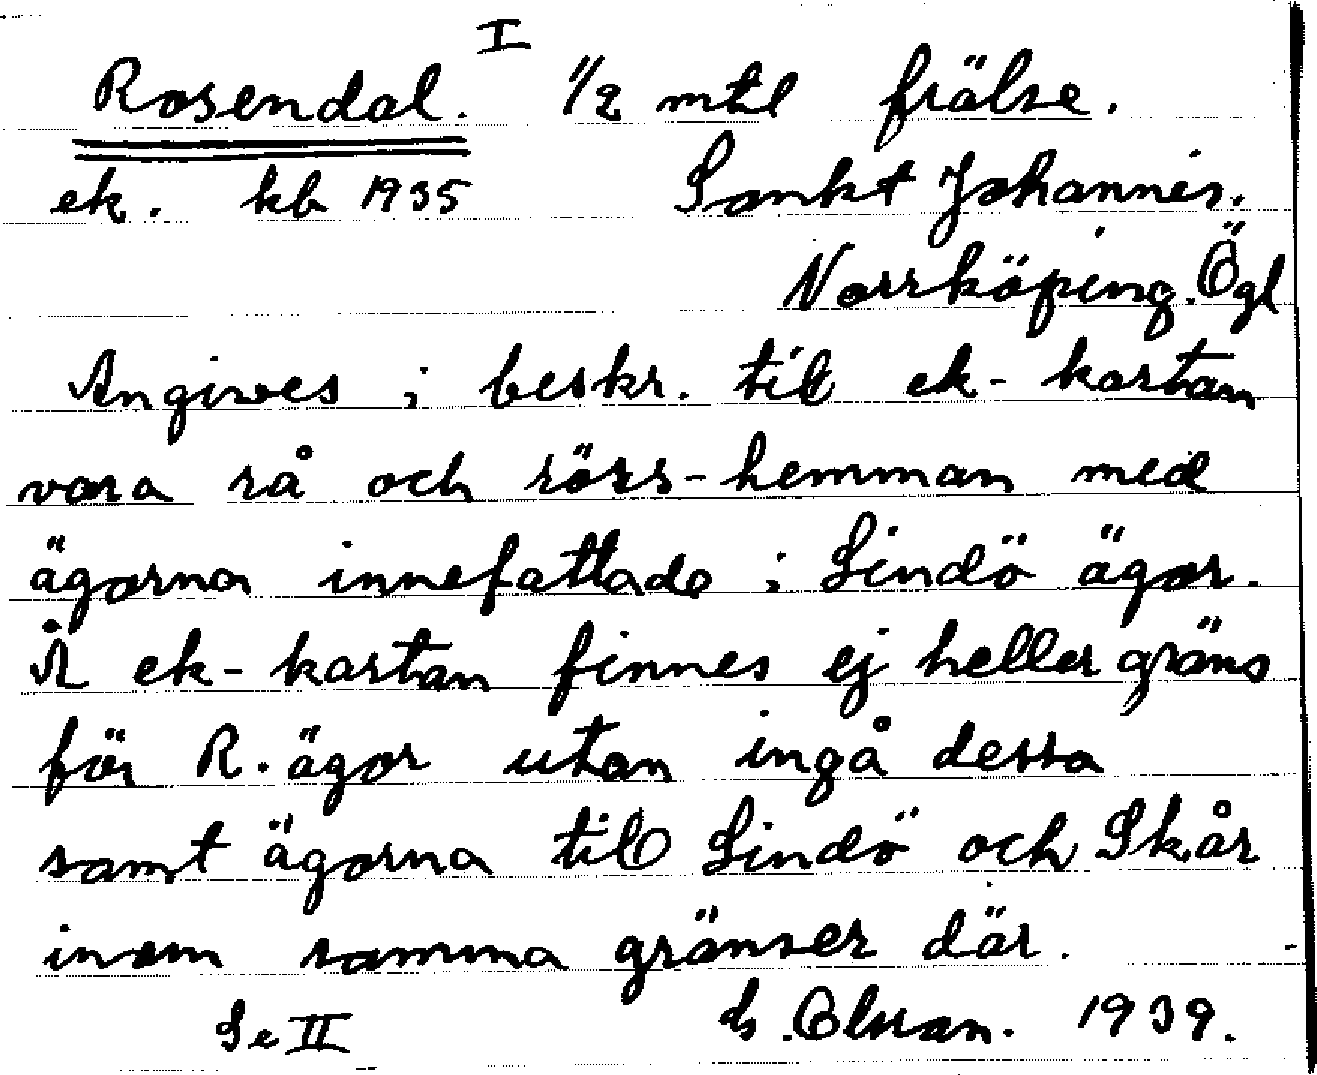 I
Rosendal. 1/2 mtl frälse.
ek. kb 1935 Sankt Johannes.
Norrköping. Ögl
Angives i beskr. till ek-kartan
vara rå och rörs-hemman med
ägorna innefattade i Lindö ägor.
Å ek-kartan finnes ej heller gräns
för R. ägor utan ingå dessa
samt ägorna till Lindö och Skår
inom samma gränser där.
Se II Olsson. 1939.